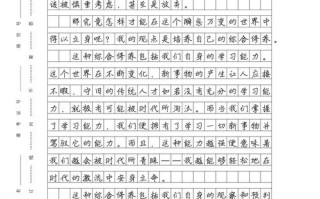 该被慎重考虑，甚至是放弃。
那究竟怎样才能在这个瞬息万变的世界中
得以立身呢？我的观点是培养自己的综合修养。
这种综合修养包括我们自身的学习能力。
这个世界在不断变化，新事物的产生让人应接
不暇，守旧的传统人才如若没有充分的学习能
力，就极有可能被时代所淘汰。而当我们掌握
了学习能力，我们便拥有了学习一切新事物并
驾驭它的能力。而且，这种能力越强便意味着
我们越会被时代所青睐——我越能够轻松地在
时代的激流中安身立命。
这种综合修养包括我们自身的观察和预判